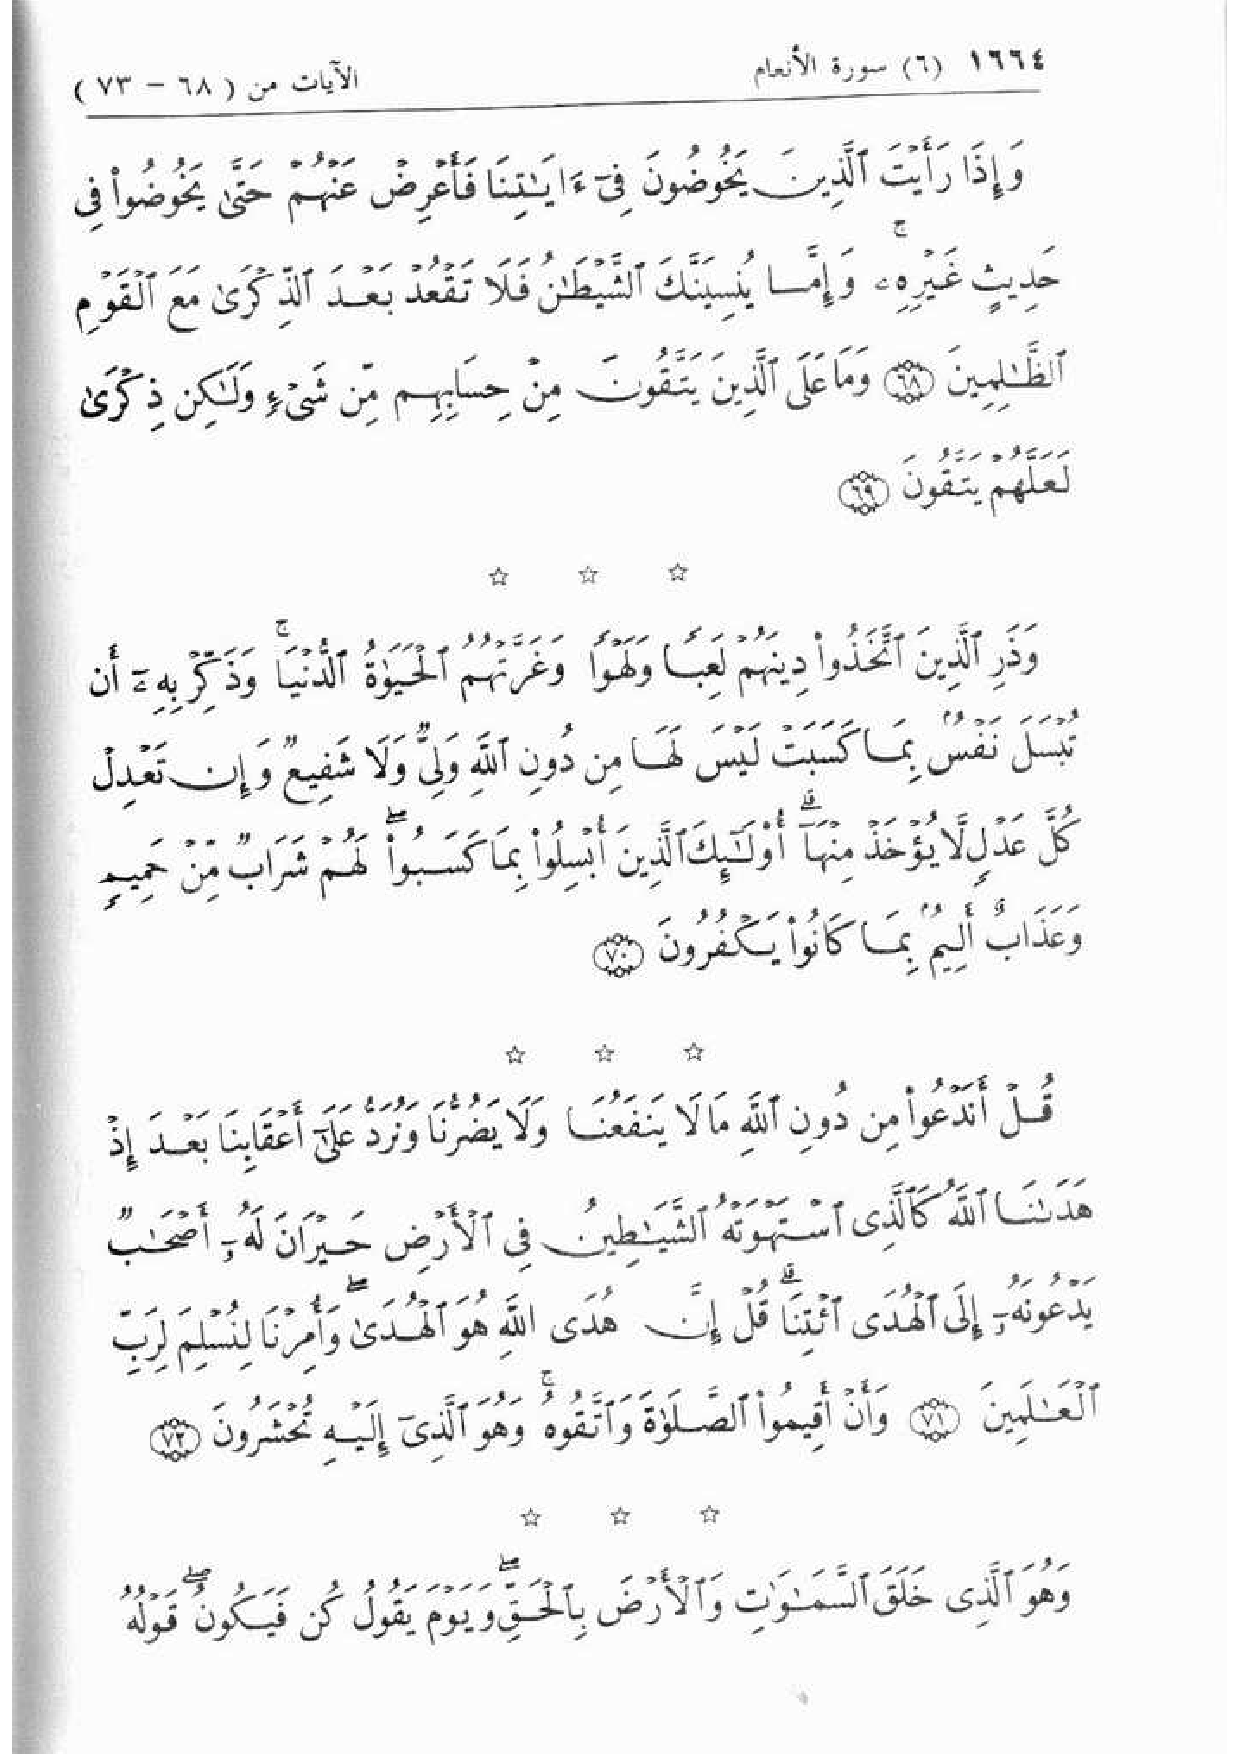 ١٦٦٤ (٦) سورة الأنعام الآيات من ( ٦٨ – ٧٣ )
وَإِذَا رَأَيْتَ ٱلَّذِينَ يَخُوضُونَ فِىٓ ءَايَٰتِنَا فَأَعْرِضْ عَنْهُمْ حَتَّىٰ يَخُوضُوا۟ فِى
حَدِيثٍ غَيْرِهِۦ ۚ وَإِمَّا يُنسِيَنَّكَ ٱلشَّيْطَٰنُ فَلَا تَقْعُدْ بَعْدَ ٱلذِّكْرَىٰ مَعَ ٱلْقَوْمِ
ٱلظَّٰلِمِينَ ٦٨ وَمَا عَلَى ٱلَّذِينَ يَتَّقُونَ مِنْ حِسَابِهِم مِّن شَىْءٍ وَلَٰكِن ذِكْرَىٰ
لَعَلَّهُمْ يَتَّقُونَ ٦٩
☆ ☆ ☆
وَذَرِ ٱلَّذِينَ ٱتَّخَذُوا۟ دِينَهُمْ لَعِبًا وَلَهْوًا وَغَرَّتْهُمُ ٱلْحَيَوٰةُ ٱلدُّنْيَا ۚ وَذَكِّرْ بِهِۦٓ أَن
تُبْسَلَ نَفْسٌۢ بِمَا كَسَبَتْ لَيْسَ لَهَا مِن دُونِ ٱللَّهِ وَلِىٌّ وَلَا شَفِيعٌ وَإِن تَعْدِلْ
كُلَّ عَدْلٍ لَّا يُؤْخَذْ مِنْهَآ ۗ أُو۟لَٰٓئِكَ ٱلَّذِينَ أُبْسِلُوا۟ بِمَا كَسَبُوا۟ ۖ لَهُمْ شَرَابٌ مِّنْ حَمِيمٍ
وَعَذَابٌ أَلِيمٌۢ بِمَا كَانُوا۟ يَكْفُرُونَ ٧٠
☆ ☆ ☆
قُلْ أَنَدْعُوا۟ مِن دُونِ ٱللَّهِ مَا لَا يَنفَعُنَا وَلَا يَضُرُّنَا وَنُرَدُّ عَلَىٰٓ أَعْقَابِنَا بَعْدَ إِذْ
هَدَىٰنَا ٱللَّهُ كَٱلَّذِى ٱسْتَهْوَتْهُ ٱلشَّيَٰطِينُ فِى ٱلْأَرْضِ حَيْرَانَ لَهُۥٓ أَصْحَٰبٌ
يَدْعُونَهُۥٓ إِلَى ٱلْهُدَى ٱئْتِنَا ۗ قُلْ إِنَّ هُدَى ٱللَّهِ هُوَ ٱلْهُدَىٰ ۖ وَأُمِرْنَا لِنُسْلِمَ لِرَبِّ
ٱلْعَٰلَمِينَ ٧١ وَأَنْ أَقِيمُوا۟ ٱلصَّلَوٰةَ وَٱتَّقُوهُ ۚ وَهُوَ ٱلَّذِىٓ إِلَيْهِ تُحْشَرُونَ ٧٢
☆ ☆ ☆
وَهُوَ ٱلَّذِى خَلَقَ ٱلسَّمَٰوَٰتِ وَٱلْأَرْضَ بِٱلْحَقِّ ۖ وَيَوْمَ يَقُولُ كُن فَيَكُونُ ۖ قَوْلُهُ